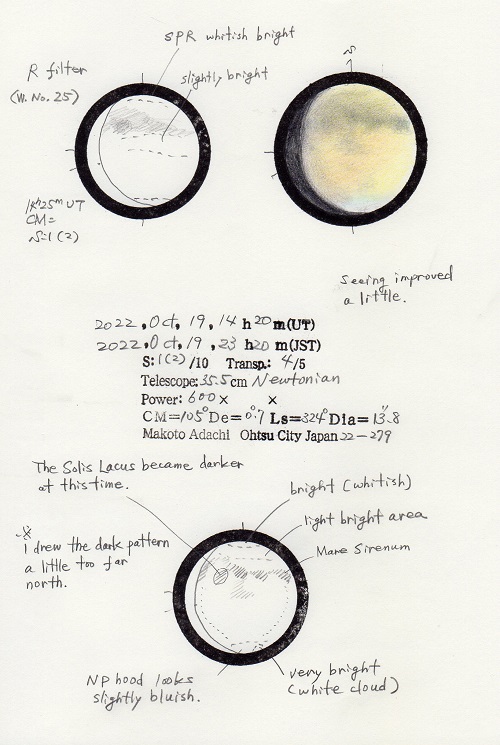 SPR whitish bright
R filter
(W. No. 25)
slightly bright
14h25m UT
CM=
S=1(2)
S
Seeing improved
a little.
2022, Oct, 19, 14 h 20 m(UT)
2022, Oct, 19, 23 h 20 m(JST)
S: 1(2) /10 Transp.: 4/5
Telescope: 35.5 cm Newtonian
Power: 600 × ×
CM=105° De= 0.°7 Ls=324° Dia= 13."8
Makoto Adachi Ohtsu City Japan 22-279
The Solis Lacus became darker
at this time.
bright (whitish)
light bright area
Mare Sirenum
※
I drew the dark pattern
a little too far
north.
NP hood looks
slightly bluish.
very bright
(white cloud)